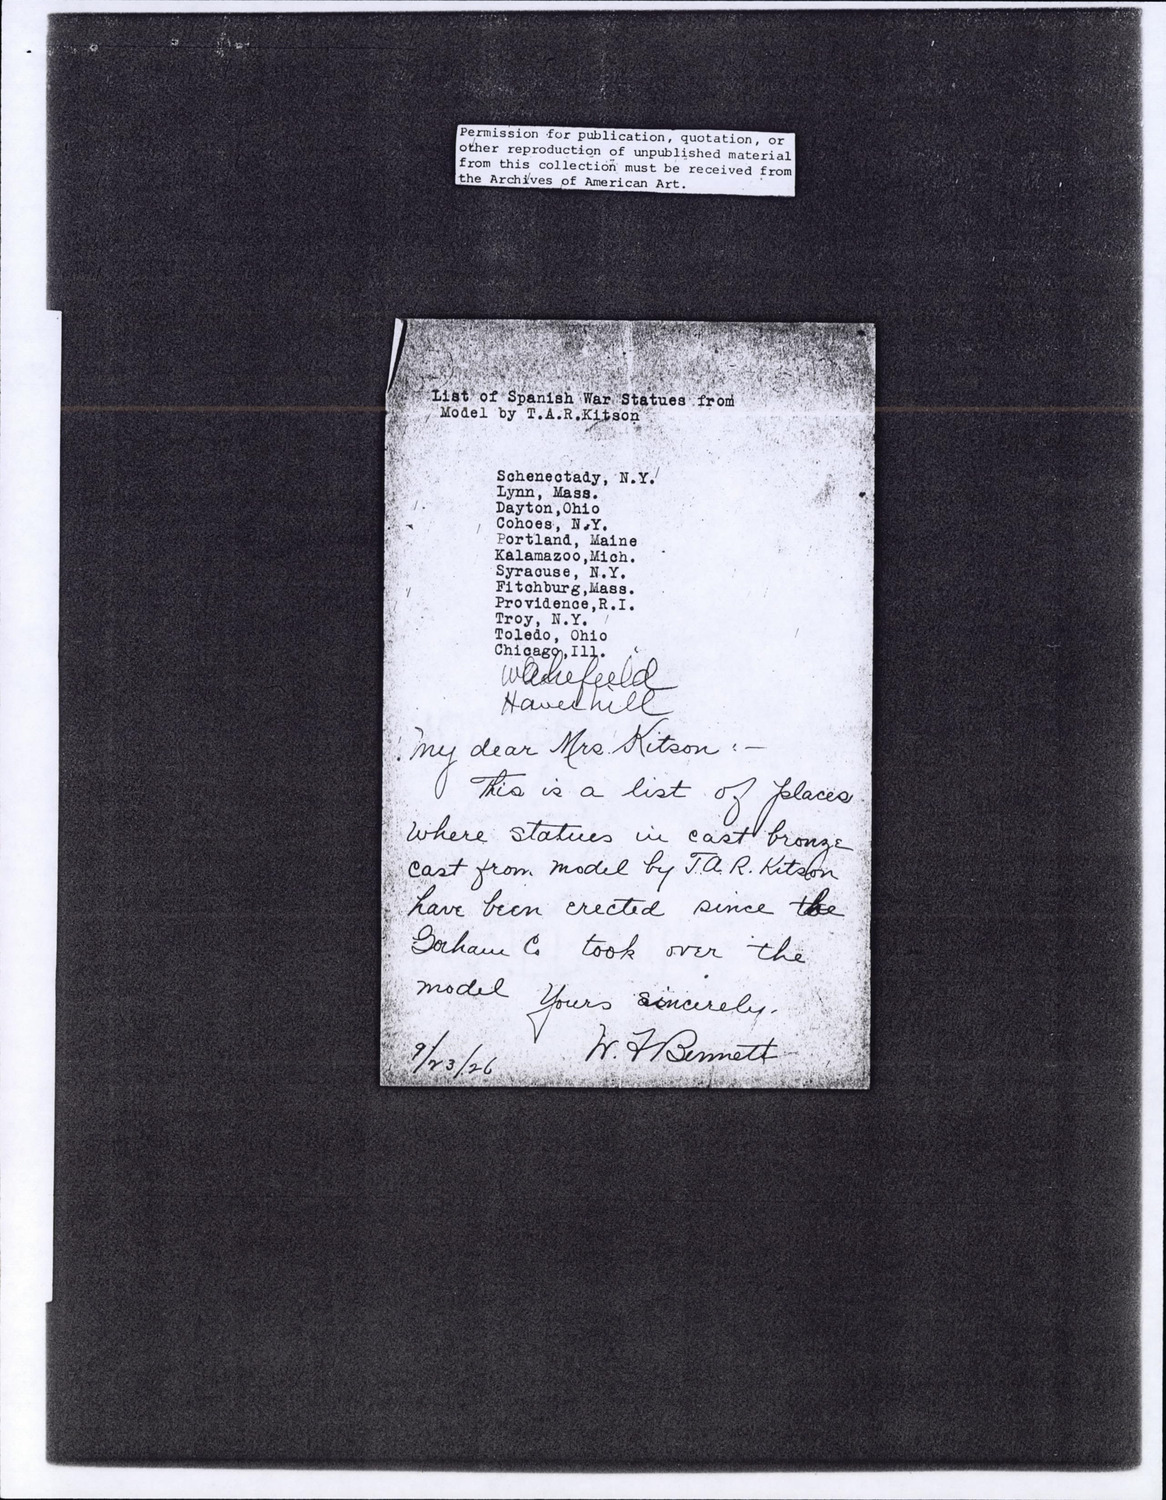 Permission for publication, quotation, or
other reproduction of unpublished material
from this collection must be received from
the Archives of American Art.
List of Spanish War Statues from
Model by T.A.R.Kitson
Schenectady, N.Y.
Lynn, Mass.
Dayton,Ohio
Cohoes, N.Y.
Portland, Maine
Kalamazoo,Mich.
Syracuse, N.Y.
Fitchburg,Mass.
Providence,R.I.
Troy, N.Y.
Toledo, Ohio
Chicago,Ill.
Wakefield
Haverhill
My dear Mrs. Kitson :—
This is a list of places
where statues in cast bronze
cast from model by T.A.R. Kitson
have been erected since the
Gorham Co took over the
model Yours sincerely.
W. F. Bennett
9/23/26